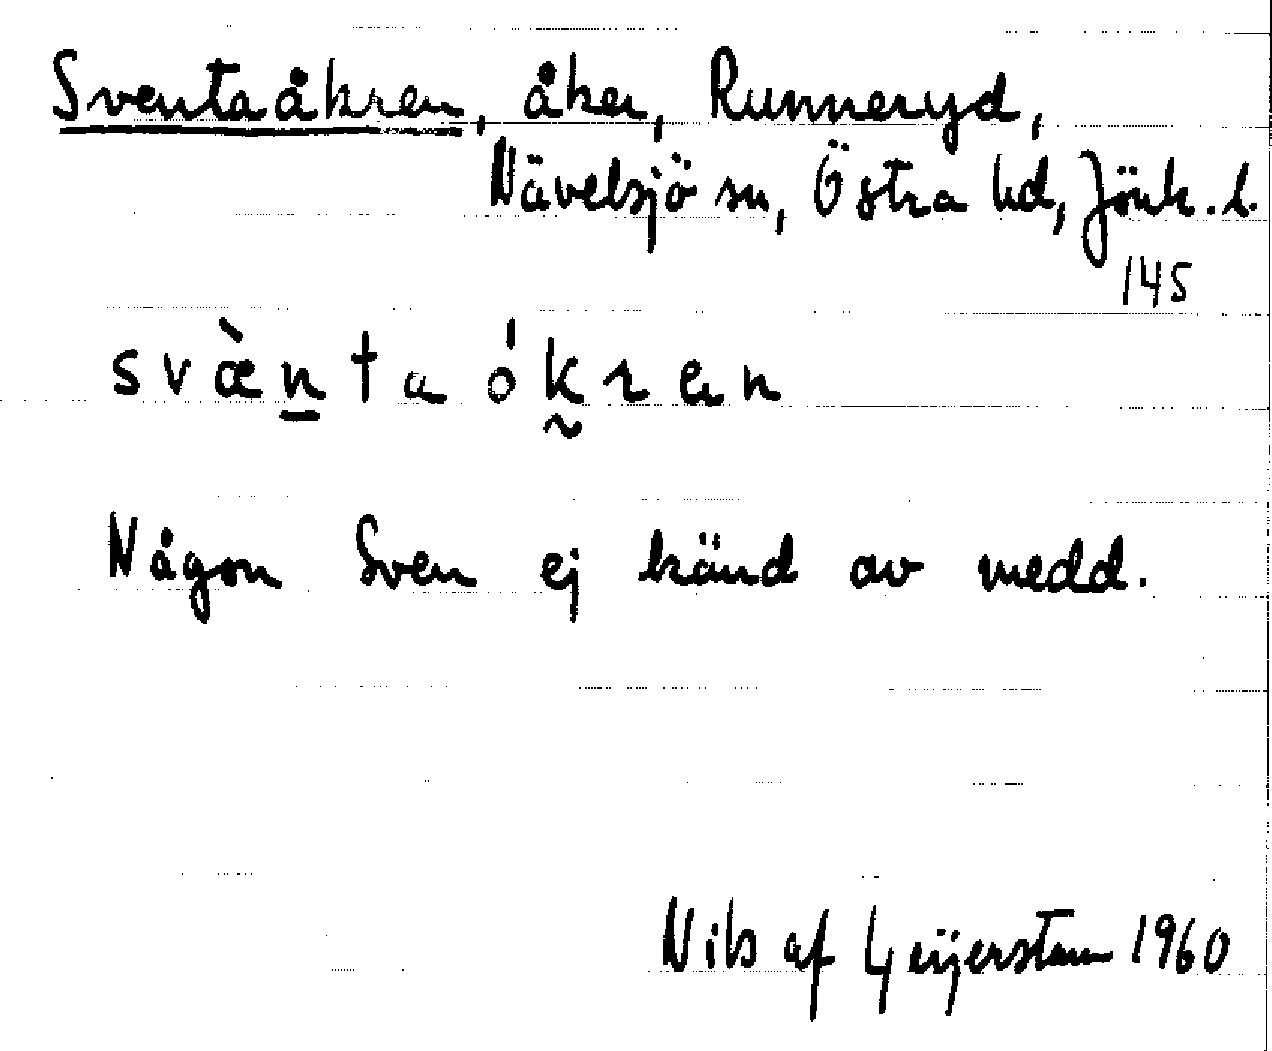 Sventaåkren, åker, Runneryd,
Nävelsjö sn, Östra hd, Jönk. l.
145
svæ̀n̲taók̰rɐn
Någon Sven ej känd av medd.
Nils af Geijerstam 1960